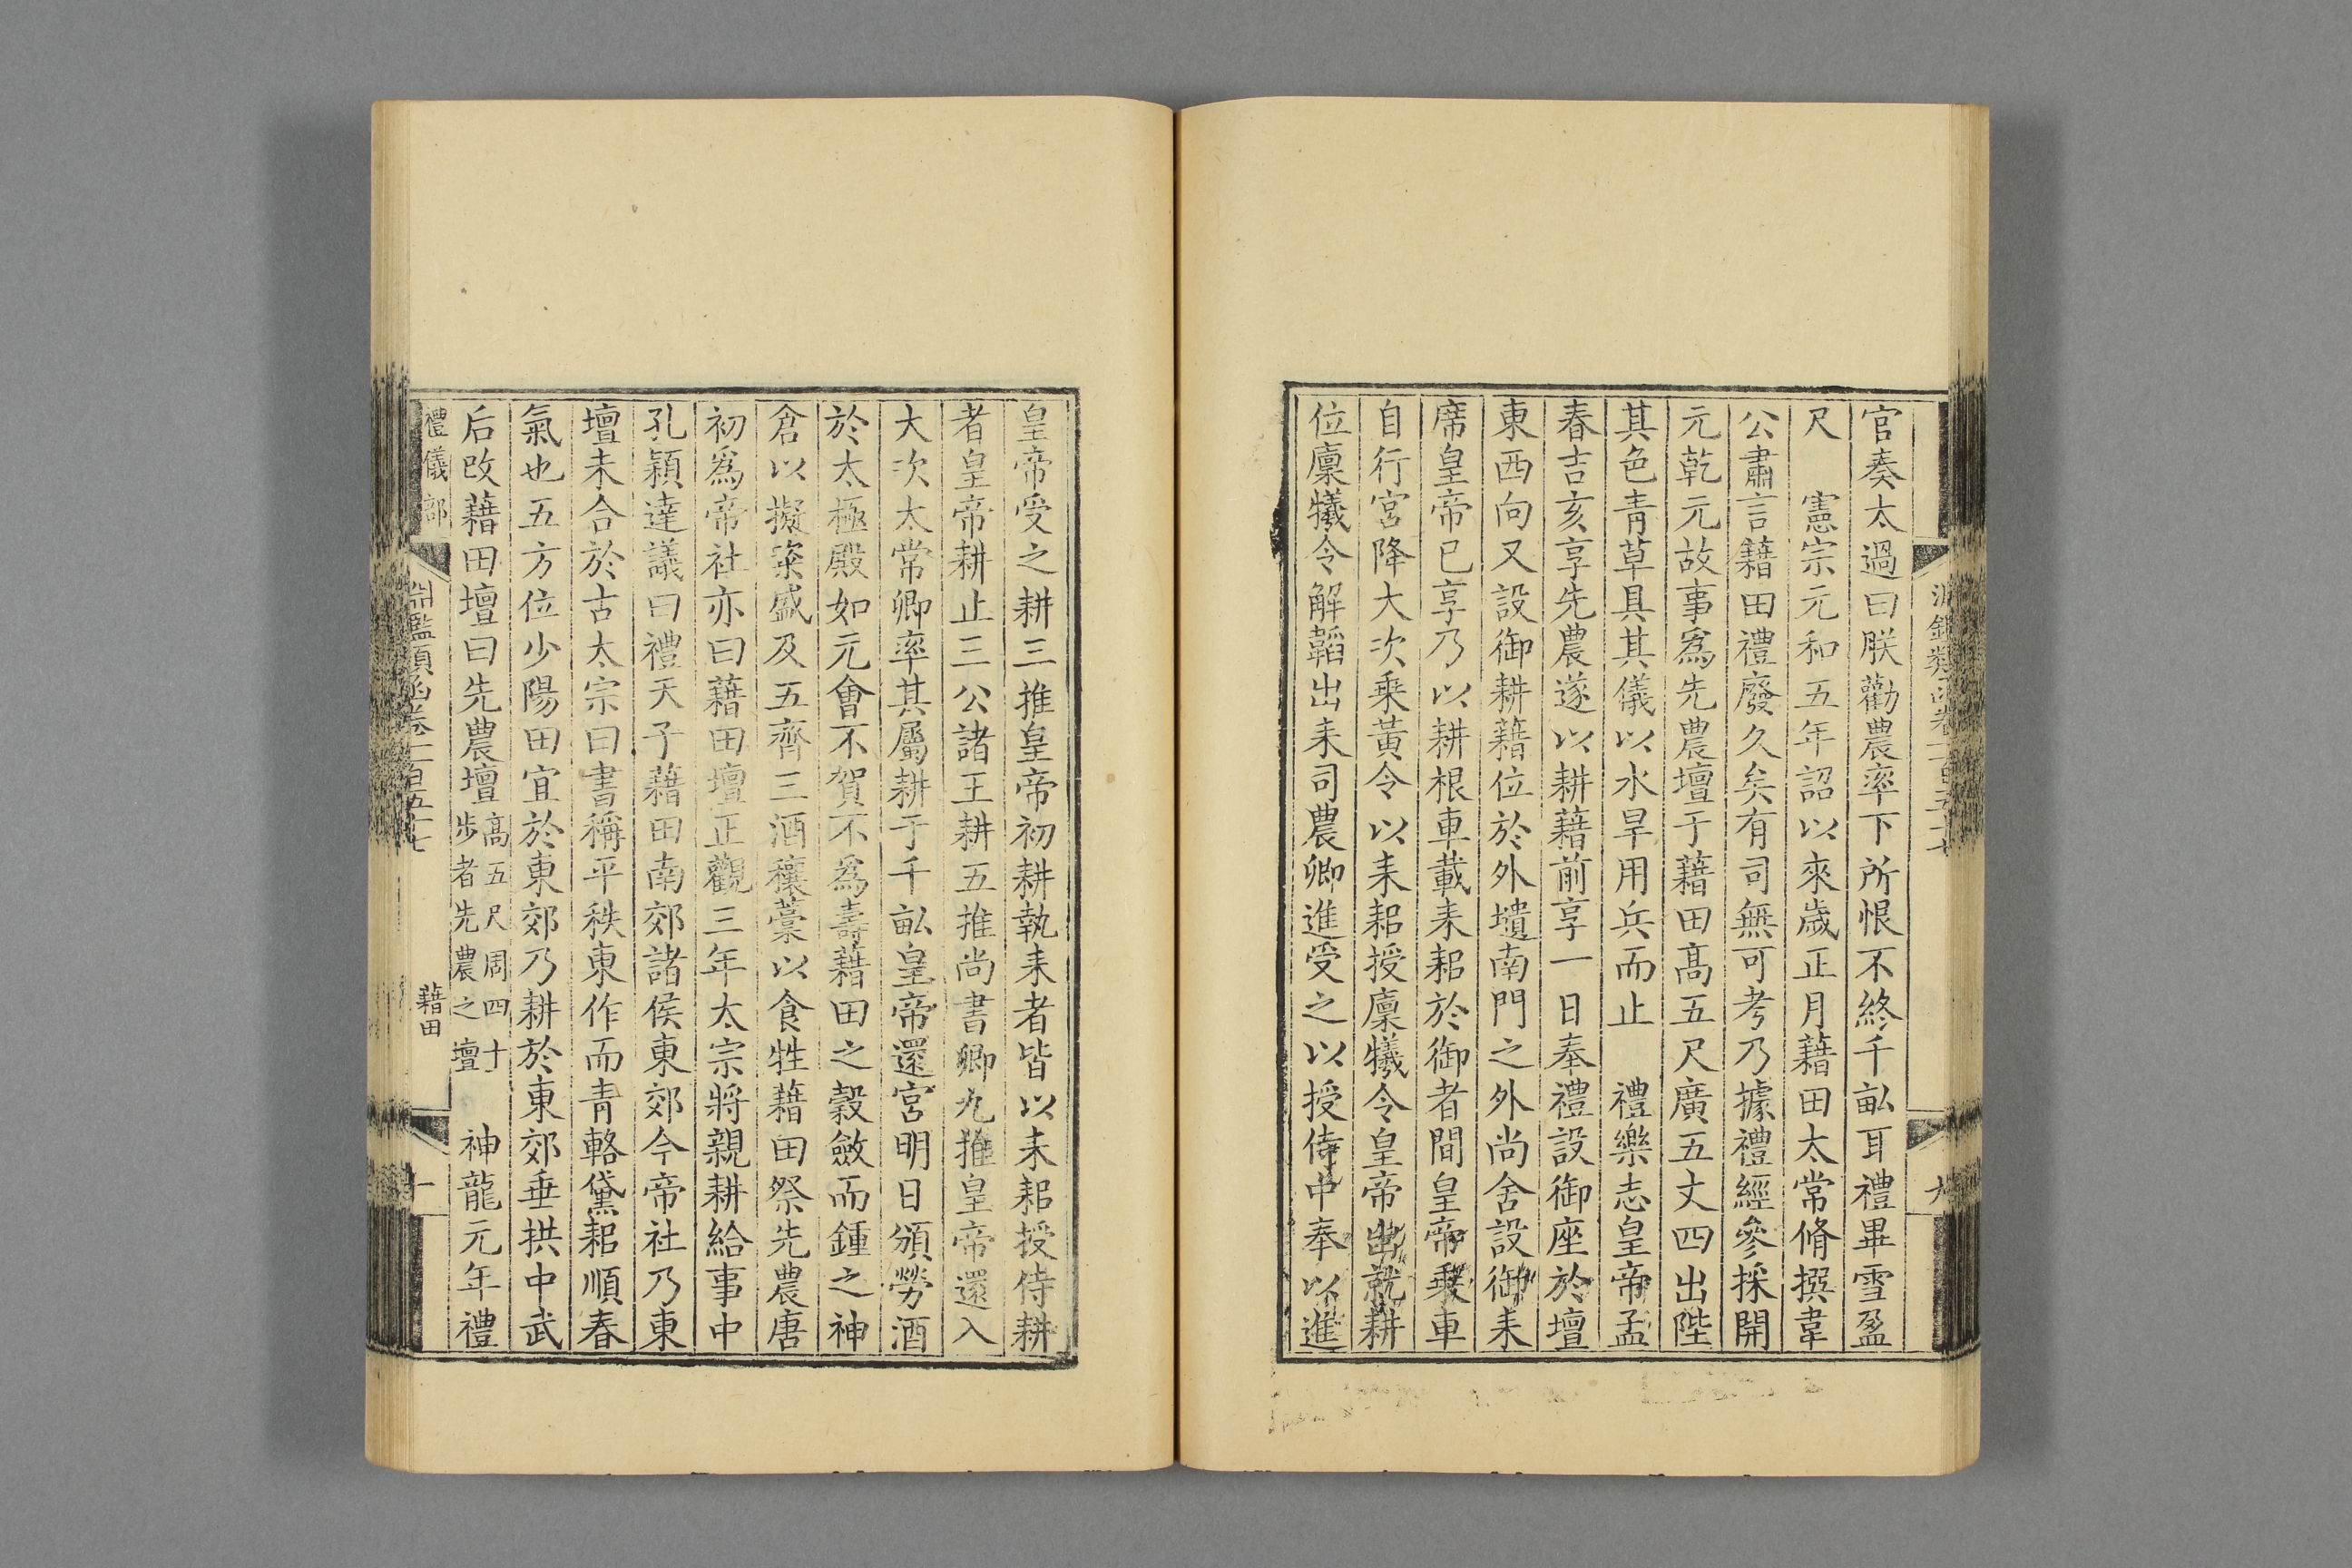 官奏太過曰朕勸農率下所恨不終千畝耳禮畢雪盈
尺　憲宗元和五年詔以來歲正月藉田太常脩撰韋
公肅言籍田禮廢久矣有司無可考乃據禮經參採開
元乾元故事爲先農壇于藉田高五尺廣五丈四出陛
其色青草具其儀以水旱用兵而止　禮樂志皇帝孟
春吉亥享先農遂以耕藉前享一日奉禮設御座於壇
東西向又設御耕籍位於外壝南門之外尚舍設御耒
席皇帝已享乃以耕根車載耒耜於御者間皇帝乘車
自行宮降大次乘黃令以耒耜授廩犧令皇帝出就耕
位廩犧令解韜出耒司農卿進受之以授侍中奉以進
皇帝受之耕三推皇帝初耕執耒者皆以耒耜授侍耕
者皇帝耕止三公諸王耕五推尚書卿九推皇帝還入
大次太常卿率其屬耕于千畝皇帝還宮明日頒勞酒
於太極殿如元會不賀不爲壽藉田之穀斂而鍾之神
倉以擬粢盛及五齊三酒穰藁以食牲藉田祭先農唐
初爲帝社亦曰藉田壇正觀三年太宗將親耕給事中
孔穎達議曰禮天子藉田南郊諸侯東郊今帝社乃東
壇未合於古太宗曰書稱平秩東作而青輅黛耜順春
氣也五方位少陽田宜於東郊乃耕於東郊垂拱中武
后改藉田壇曰先農壇高五尺周四十步者先農之壇　神龍元年禮
禮儀部
淵鑑類函卷一百五十七
藉田